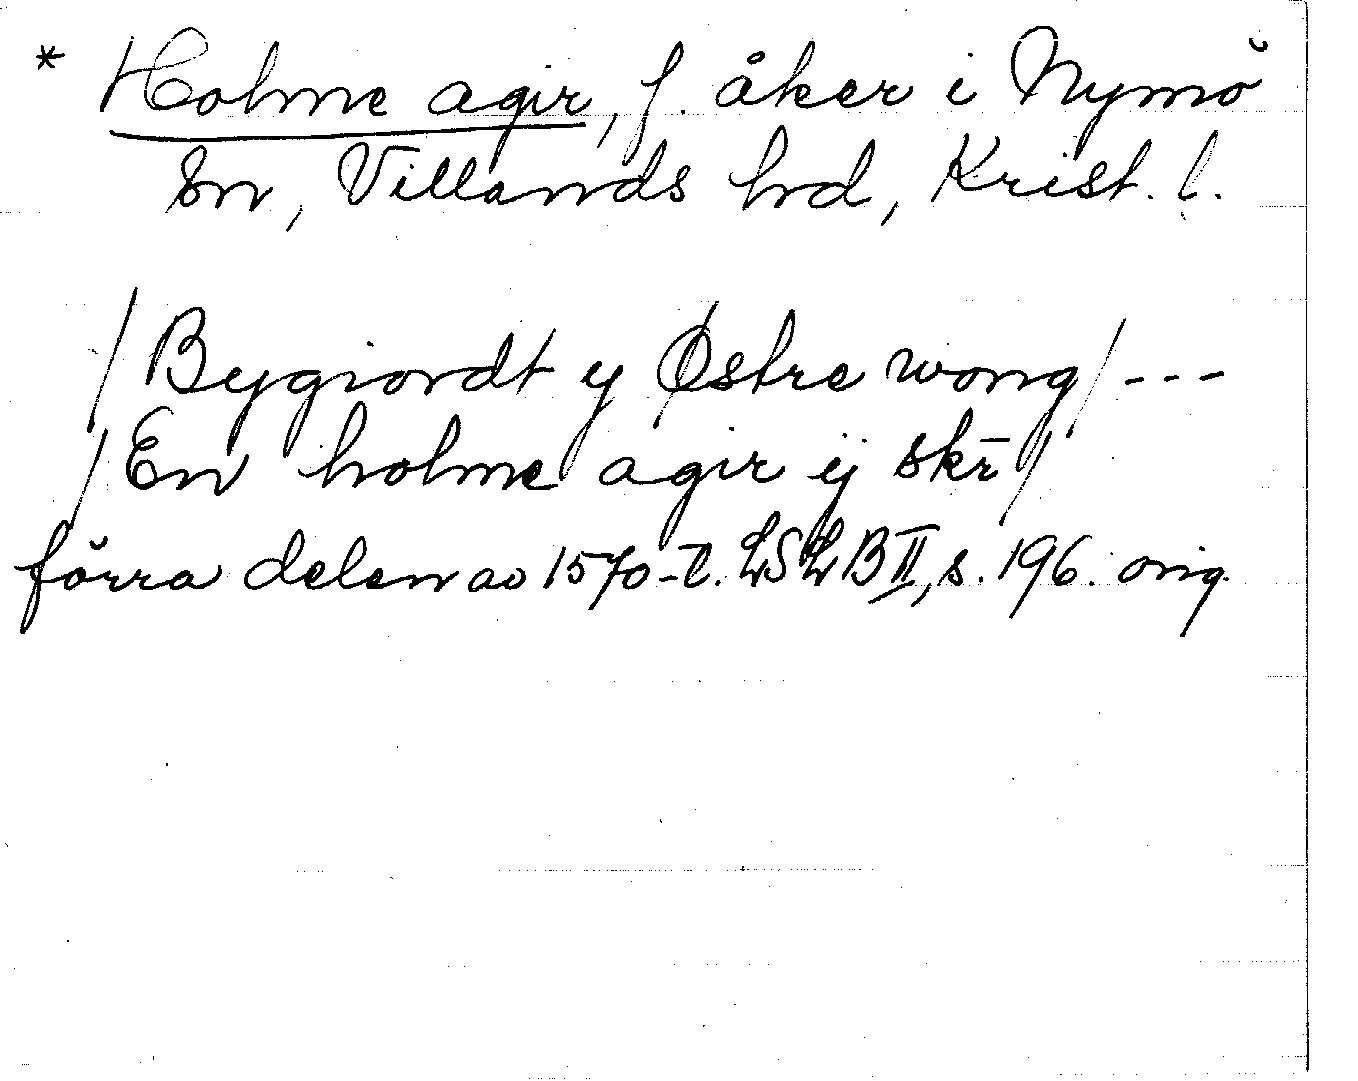 * Holme agir, f. åker i Nymö
sn, Villands hrd, Krist. l.
/Bygiordt y Østre wong/ ---
/En holme agir ij skr̄/
förra delen av 1570-t. LSLB II, s. 196. orig.